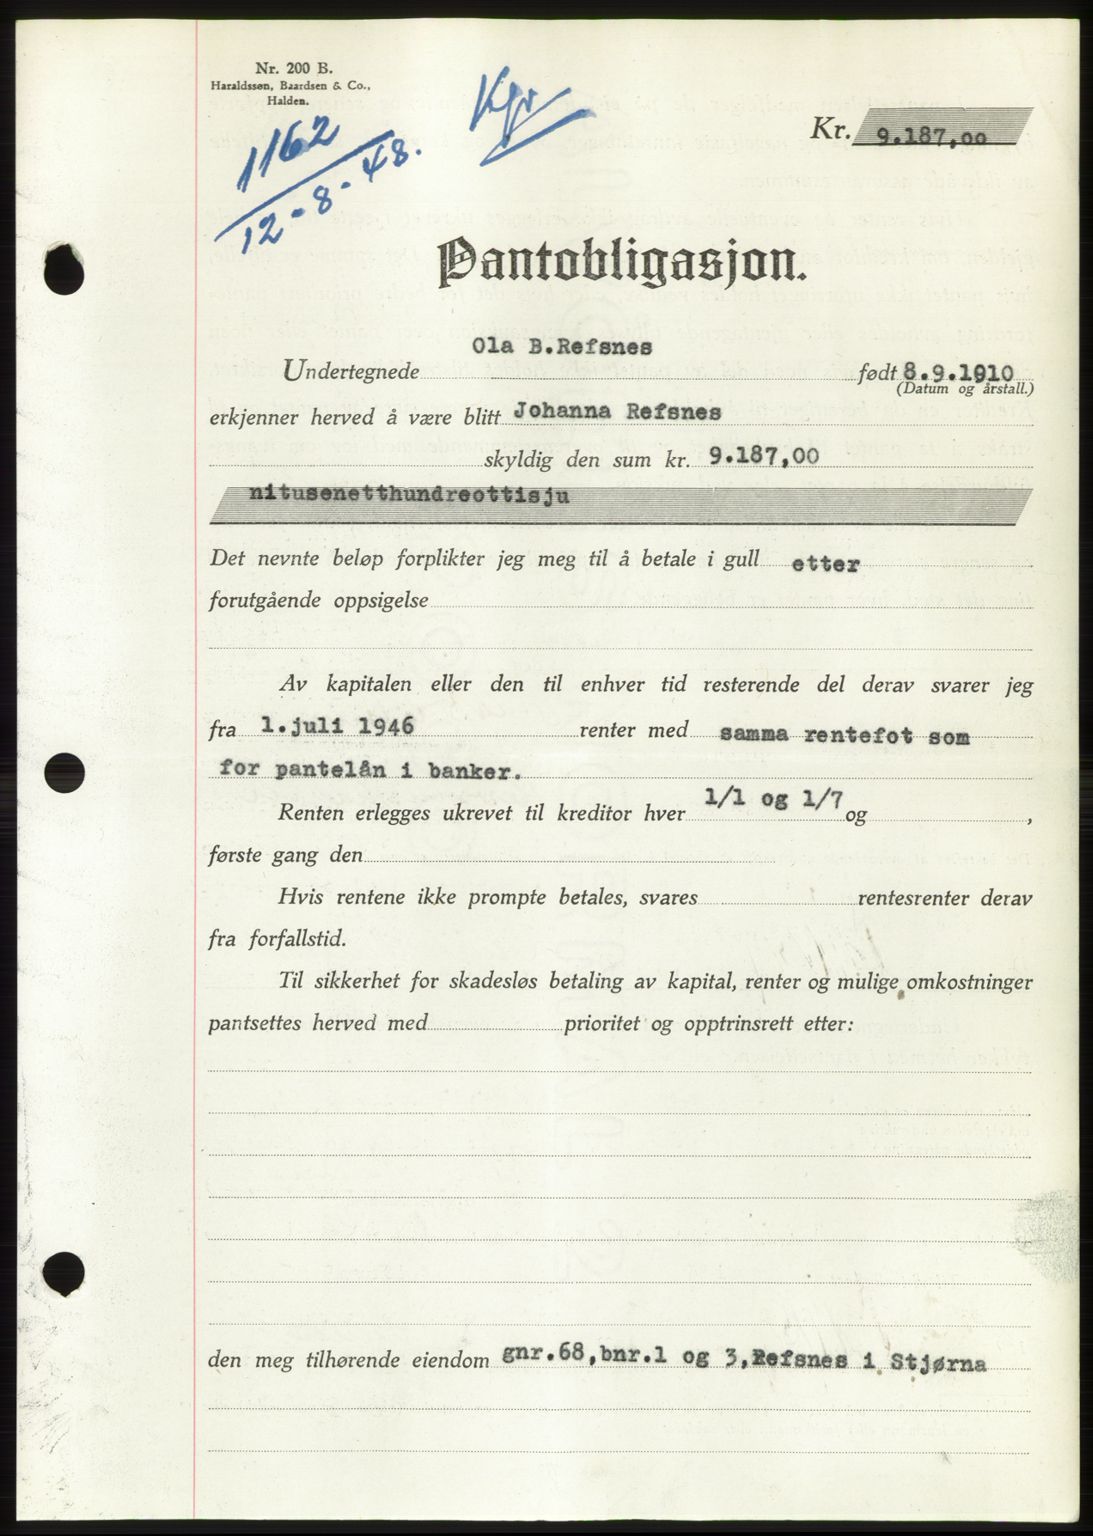 Nr. 200 B.
Haraldssøn, Baardsen & Co.,
Halden.
1162
12-8-48.
Kgr
Kr. 9.187,00
Pantobligasjon.
Ola B.Refsnes
Undertegnede født 8.9.1910
(Datum og årstall.)
erkjenner herved å være blitt Johanna Refsnes
skyldig den sum kr. 9.187,00
nitusenetthundreottisju
Det nevnte beløp forplikter jeg meg til å betale i gull etter
forutgående oppsigelse
Av kapitalen eller den til enhver tid resterende del derav svarer jeg
fra 1.juli 1946 renter med samma rentefot som
for pantelån i banker.
Renten erlegges ukrevet til kreditor hver 1/1 og 1/7 og ,
første gang den
Hvis rentene ikke prompte betales, svares rentesrenter derav
fra forfallstid.
Til sikkerhet for skadesløs betaling av kapital, renter og mulige omkostninger
pantsettes herved med prioritet og opptrinsrett etter:
den meg tilhørende eiendom gnr.68,bnr.1 og 3,Refsnes i Stjørna